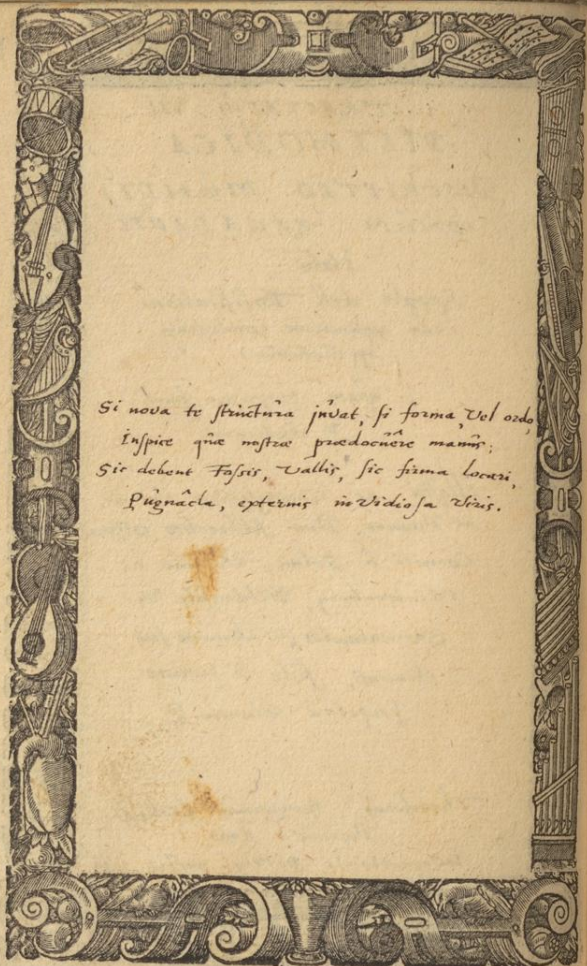 Si nova te structura juvat, si forma, vel ordo,
Inspice quæ nostræ prædocuêre manus;
Sic debent Fossis, Vallis, sic firma locari,
Pugnâcla, externis invidiosa viris.